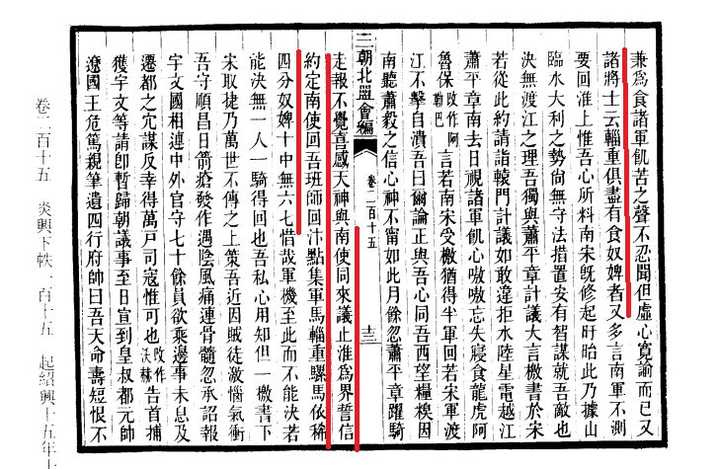 兼爲食諸軍飢苦之聲不忍聞但虛心寬諭而已又
諸將士云輜重俱盡有食奴婢者又多言南軍不測
要回淮上惟吾心所料南宋旣修起盱眙此乃據山
臨水大利之勢尙無守法措置安有智謀就吾敵也
決無渡江之理吾獨與蕭平章計議大言檄書於宋
若從此約請詣轅門計議如敢違拒水陸星電越江
蕭平章南去日視諸軍飢心嗷嗷忘失寢食龍虎阿
魯保改作阿勒巴言若南宋受檄猶得半軍回若宋軍渡
江不擊自潰吾曰爾論正與吾心同吾西望糧糗因
南聽蕭殺之信心神不甯如此月餘忽蕭平章躍騎
三朝北盟會編 卷二百十五 十三
走報不覺喜感天神與南使同來議止淮爲界誓信
約定南使回吾班師回汴點集軍馬輜重騾馬依稀
四分奴婢十中無六七惜哉軍機至此而不能決若
能決無一人一騎得回也吾私心用知但一檄書下
宋取捷乃萬世不傳之上策吾近因賊徒激惱氣衝
吾守順昌日箭瘡發作遇陰風痛連骨髓忽承詔報
宇文國相連中外官守七十餘員欲乘邊事未息及
遷都之冗謀反幸得萬戶司寇惟可也改作決赫告首捕
獲宇文等請卽暫歸朝議事至日宣到皇叔都元帥
遼國王危篤親筆遺四行府帥曰吾天命壽短恨不
卷二百十五 炎興下帙一百十五 起紹興十五年